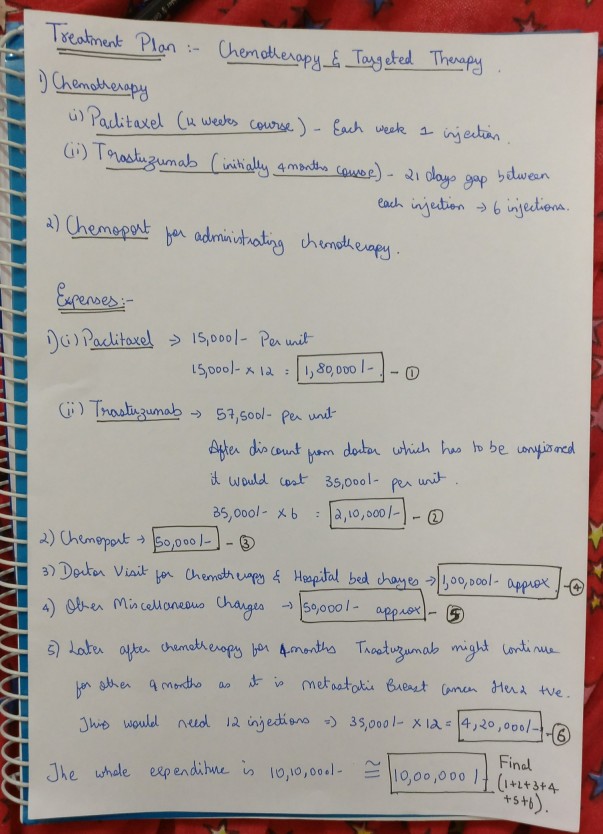 Treatment Plan :- Chemotherapy & Targeted Therapy.
1) Chemotherapy
(i) Paclitaxel (12 weeks course) - Each week 1 injection.
(ii) Trastuzumab (initially 4 months course) - 21 days gap between
each injection → 6 injections.
2) Chemoport for administrating chemotherapy.
Expenses:-
1) (i) Paclitaxel → 15,000/- Per unit
15,000/- x 12 = 1,80,000/- - ①
(ii) Trastuzumab → 57,500/- per unit
After discount from doctor which has to be confirmed
it would cost 35,000/- per unit.
35,000/- x 6 = 2,10,000/- - ②
2) Chemoport → 50,000/- - ③
3) Doctor Visit for Chemotherapy & Hospital bed charges → 1,00,000/- approx. - ④
4) Other Miscellaneous Charges → 50,000/- approx - ⑤
5) Later after chemotherapy for 4 months Trastuzumab might continue
for other 9 months as it is metastatic Breast Cancer Her2 +ve.
This would need 12 injections ⇒ 35,000/- x 12 = 4,20,000/- - ⑥
The whole expenditure is 10,10,000/- ≅ 10,00,000/- Final
(1+2+3+4
+5+6).